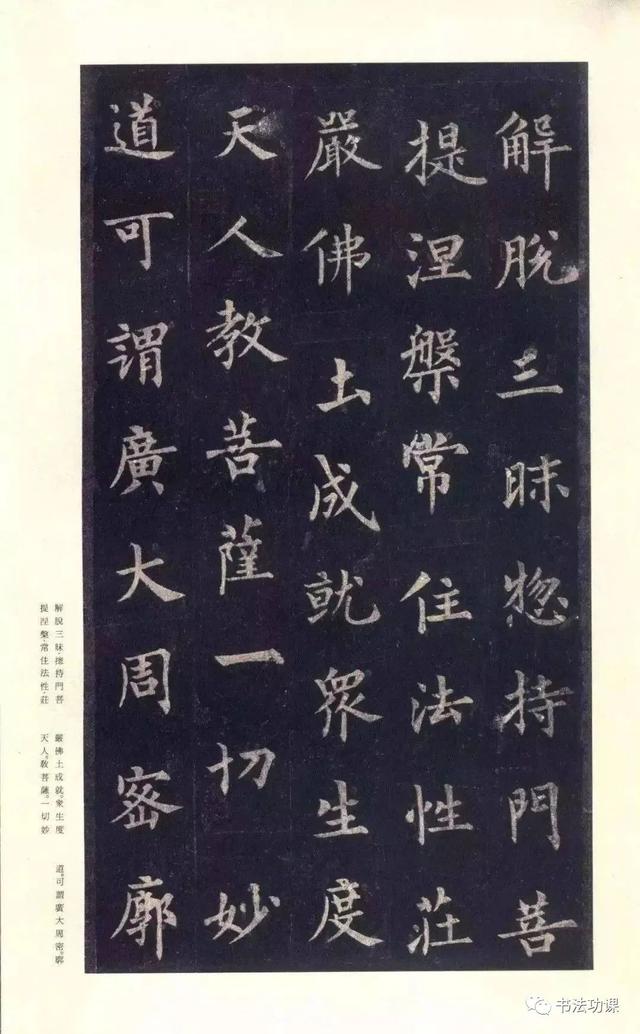 解脫三昧惣持門菩
提涅槃常住法性莊
嚴佛土成就眾生度
天人教菩薩一切妙
道可謂廣大周密廓
解脫三昧，揔持門菩
提涅槃，常住法性，莊
嚴佛土成就。衆生度
天人。教菩薩。一切妙
道。可謂廣大周密。廓
书法功课